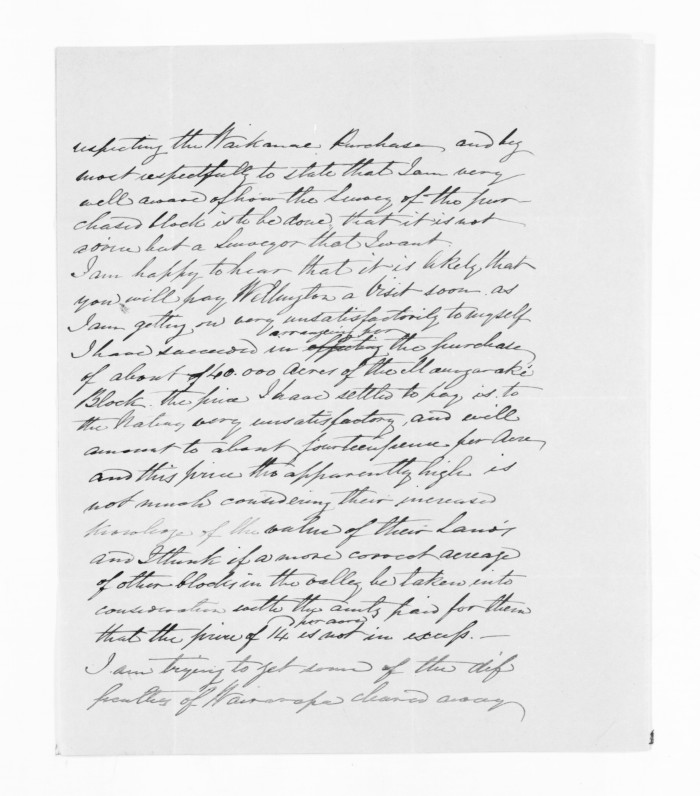 respecting the Waikanae Purchase, and beg
most respectfully to state that I am very
well aware of how the Survey of the pur-
chased block is to be done, that it is not
advice but a Surveyor that I want.
I am happy to hear that it is likely that
you will pay Wellington a Visit soon. as
I am getting on very unsatisfactorily to myself
arranging for
I have succeeded in effecting the purchase
of about 40.000 acres of the Maungaraki
Block. the price I have settled to pay is to
the Natives very unsatisfactory, and will
amount to about fourteenpence per Acre,
and this price tho apparently high is
not much considering their increased
knowledge of the value of their Lands
and I think if a more correct acreage
of other blocks in the valley be taken into
consideration with the amts paid for them
per acre
that the price of 14 is not in excess. —
I am trying to get some of the dif
ficulties of Wairarapa cleared away